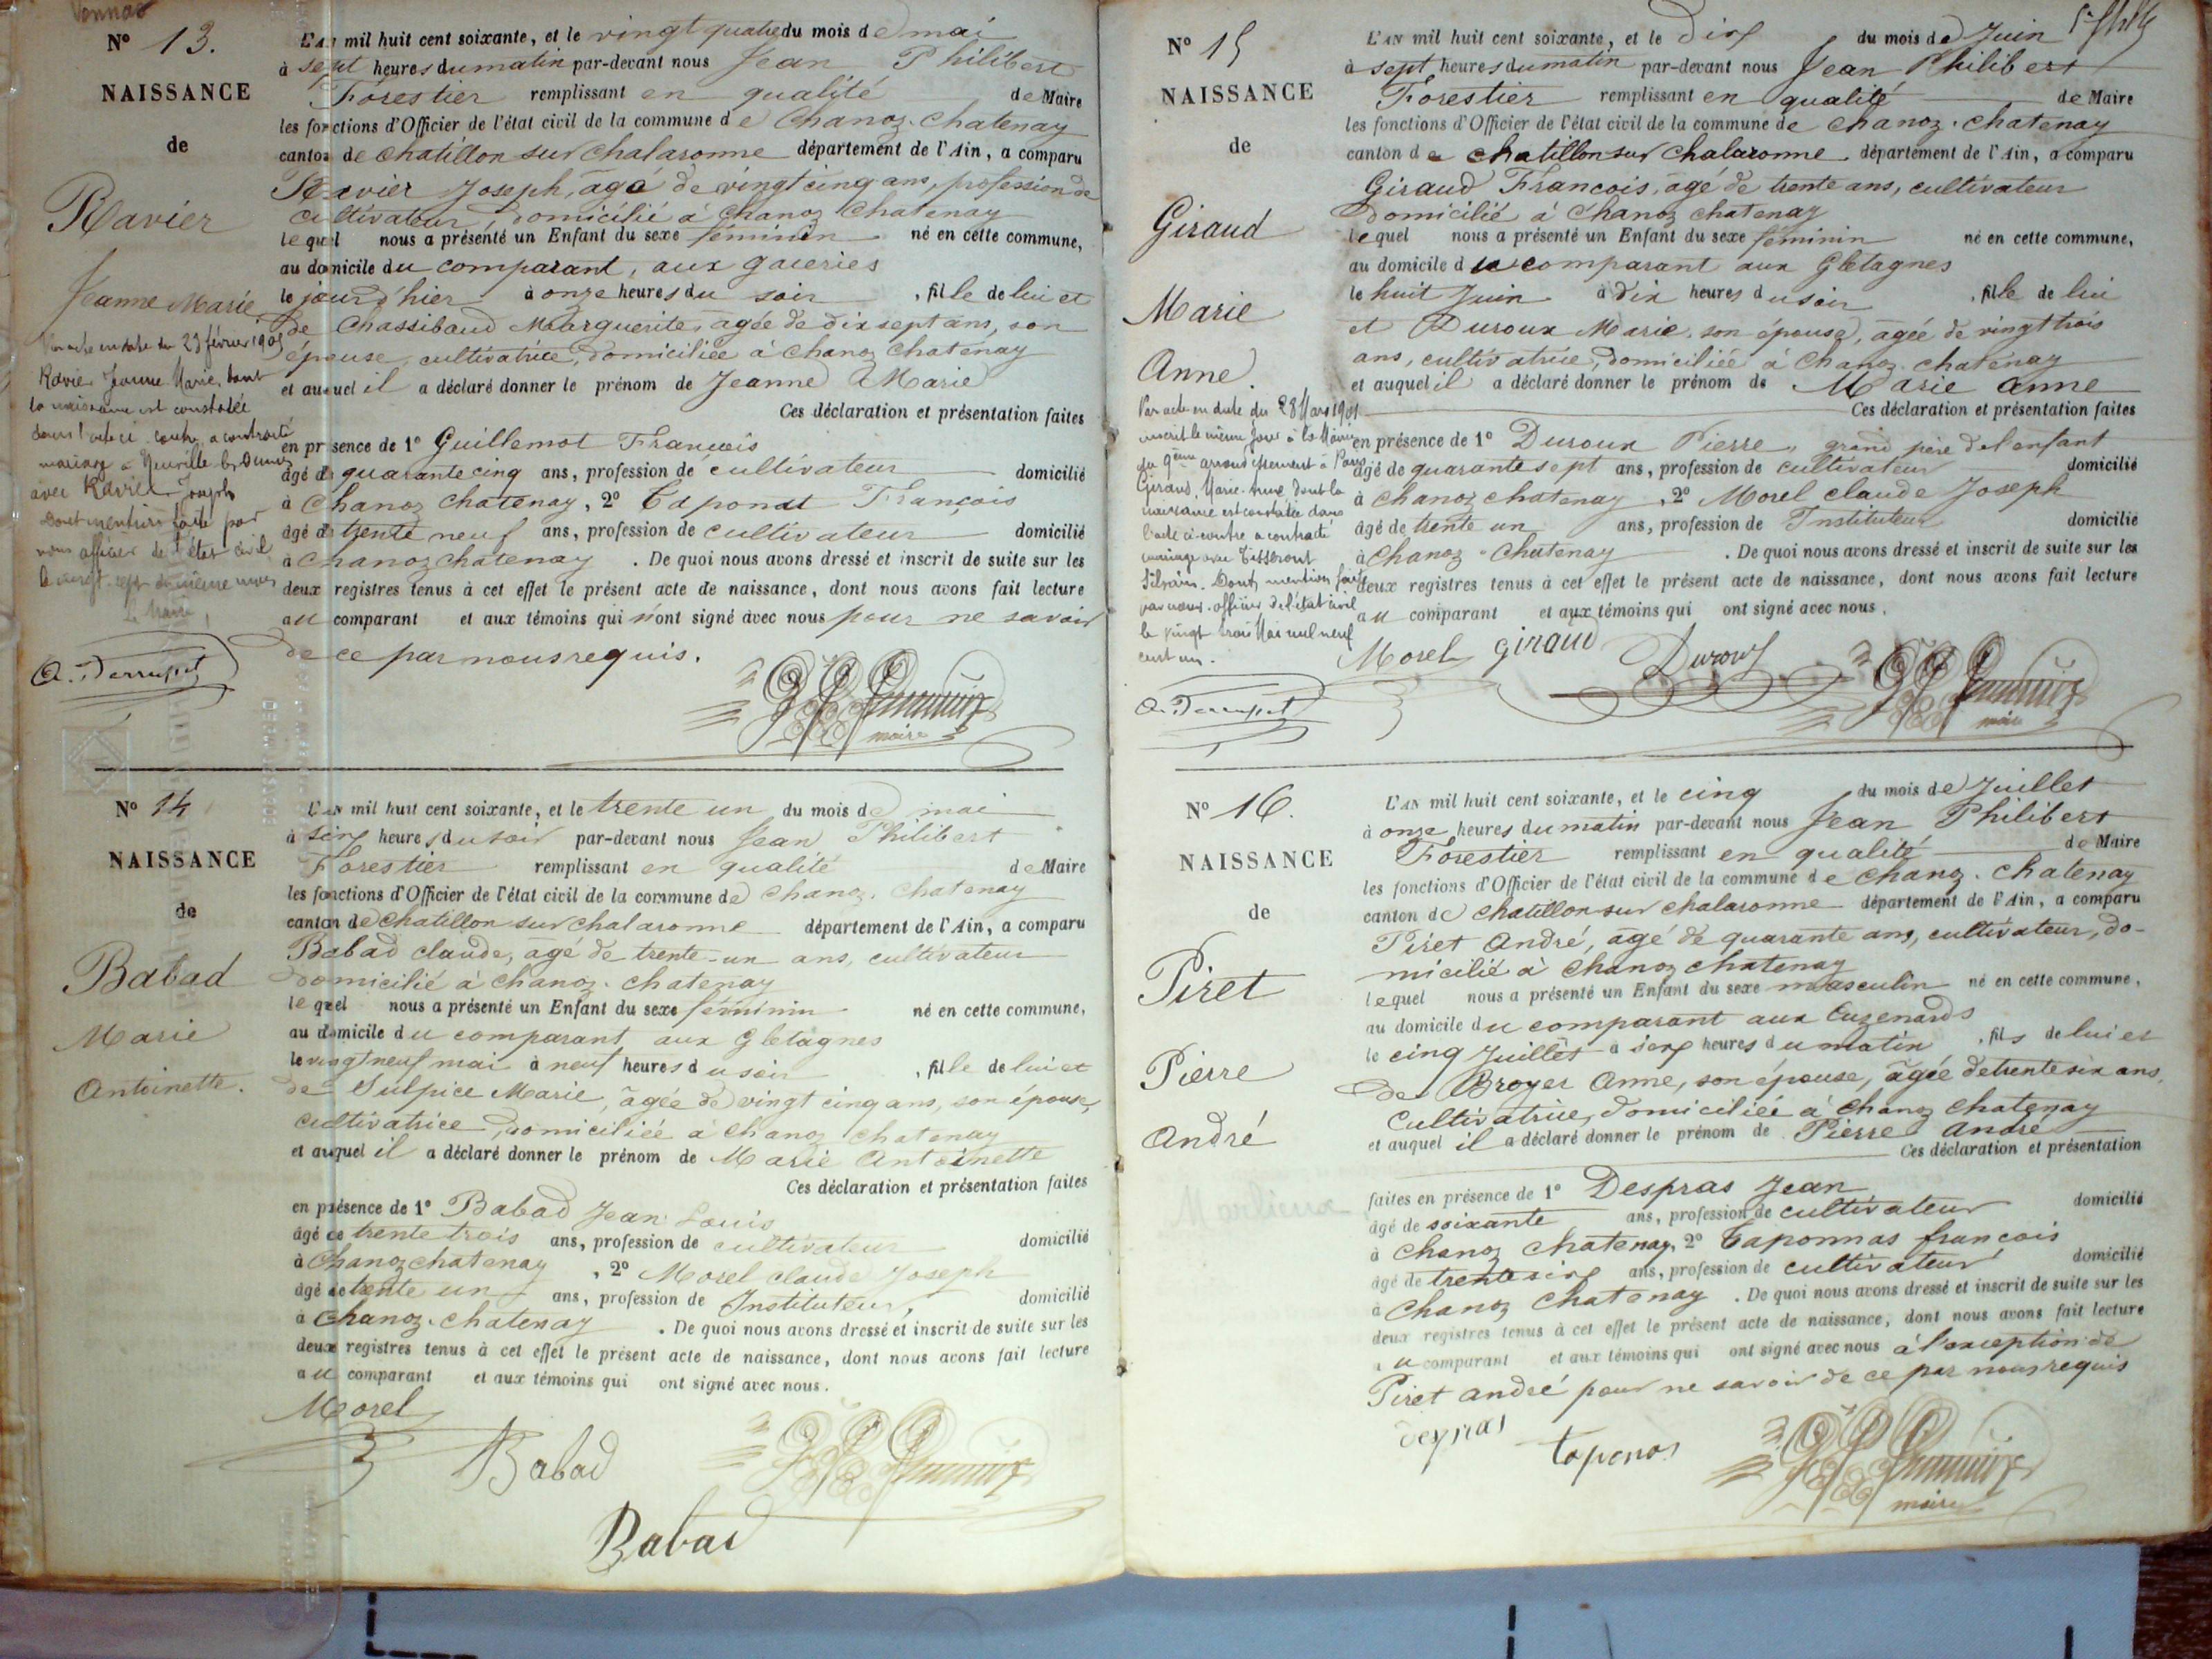 Vonnas
Nº 13.
NAISSANCE
de
Ravier
Jeanne Marie
Par acte en date du 23 février 190
Ravier Jeanne Marie, dont
la naissance est constatée
dans l'acte ci-contre, a contracté
mariage à Neuville les Dames
avec Ravier Joseph
Dont mention faite par
nous officier de l'état civil
le vingt sept du même mois
Le Maire,
L'AN mil huit cent soixante, et le vingt quatre du mois de mai
à sept heures du matin par-devant nous Jean Philibert
Forestier remplissant en qualité de Maire
les fonctions d'Officier de l'état civil de la commune de Chanoz-Chatenay
canton de Chatillon sur Chalaronne département de l'Ain, a comparu
Ravier Joseph, âgé de vingt cinq ans, profession de
cultivateur domicilié à Chanoz Chatenay
lequel nous a présenté un Enfant du sexe féminin né en cette commune,
au domicile du comparant, aux
le jour d'hier à onze heures du soir , fille de lui et
de Chassibaud Marguerite, agée de dix sept ans, son
épouse, cultivatrice, domiciliée à Chanoz Chatenay
et auquel il a déclaré donner le prénom de Jeanne Marie
Ces déclaration et présentation faites
en présence de 1º Guillemot François
âgé de quarante cinq ans, profession de cultivateur domicilié
à Chanoz Chatenay, 2º Taponat François
âgé de trente neuf ans, profession de cultivateur domicilié
à Chanoz chatenay . De quoi nous avons dressé et inscrit de suite sur les
deux registres tenus à cet effet le présent acte de naissance, dont nous avons fait lecture
au comparant et aux témoins qui n'ont signé avec nous pour ne savoir
de ce par nous requis.
maire
Nº 14
NAISSANCE
de
Babad
Marie
Antoinette.
L'AN mil huit cent soixante, et le trente un du mois de mai
à six heures du soir par-devant nous Jean Philibert
Forestier remplissant en qualité de Maire
les fonctions d'Officier de l'état civil de la commune de Chanoz-Chatenay
canton de Chatillon sur Chalaronne département de l'Ain, a comparu
Babad claude, agé de trente-un ans, cultivateur
domicilié à Chanoz-Chatenay
lequel nous a présenté un Enfant du sexe féminin né en cette commune,
au domicile du comparant aux Gletagnes
le vingt neuf mai à neuf heures du soir , fille de lui et
de Sulpice Marie, âgée de vingt cinq ans, son épouse,
cultivatrice, domiciliée à Chanoz Chatenay
et auquel il a déclaré donner le prénom de Marie Antoinette
Ces déclaration et présentation faites
en présence de 1º Babad Jean Louis
âgé de trente trois ans, profession de cultivateur domicilié
à Chanoz chatenay , 2º Morel claude Joseph
âgé de trente un ans, profession de Instituteur, domicilié
à Chanoz-Chatenay . De quoi nous avons dressé et inscrit de suite sur les
deux registres tenus à cet effet le présent acte de naissance, dont nous avons fait lecture
au comparant et aux témoins qui ont signé avec nous.
Morel
Babad
Babad
Nº 15
NAISSANCE
de
Giraud
Marie
Anne.
Par acte en date du 28 Mars 1901
inscrit le même jour à la Mairie
du 9ème arrondissement à Paris
Giraud, Marie-Anne, dont la
naissance est constatée dans
l'acte ci-contre a contracté
mariage avec Tisseront
Silvain. Dont mention faite
par nous, officier de l'état civil
le vingt trois Mai mil neuf
cent un.
L'AN mil huit cent soixante, et le dix du mois de Juin
à sept heures du matin par-devant nous Jean Philibert
Forestier remplissant en qualité de Maire
les fonctions d'Officier de l'état civil de la commune de Chanoz-Chatenay
canton de Chatillon sur Chalaronne département de l'Ain, a comparu
Giraud François, âgé de trente ans, cultivateur
domicilié à Chanoz chatenay
lequel nous a présenté un Enfant du sexe féminin né en cette commune,
au domicile du comparant aux Gletagnes
le huit Juin à dix heures du soir , fille de lui
et Duroux Marie, son épouse, agée de vingt trois
ans, cultivatrice, domiciliée à Chanoz-chatenay
et auquel il a déclaré donner le prénom de Marie Anne
Ces déclaration et présentation faites
en présence de 1º Duroux Pierre, grand père de l'enfant
âgé de quarante sept ans, profession de cultivateur domicilié
à Chanoz chatenay , 2º Morel claude Joseph
âgé de trente un ans, profession de Instituteur domicilié
à Chanoz-Chatenay . De quoi nous avons dressé et inscrit de suite sur les
deux registres tenus à cet effet le présent acte de naissance, dont nous avons fait lecture
au comparant et aux témoins qui ont signé avec nous.
Morel giraud Duroux
maire
Nº 16.
NAISSANCE
de
Piret
Pierre
André
Marlieux
L'AN mil huit cent soixante, et le cinq du mois de Juillet
à onze heures du matin par-devant nous Jean Philibert
Forestier remplissant en qualité de Maire
les fonctions d'Officier de l'état civil de la commune de Chanoz-Chatenay
canton de Chatillon sur Chalaronne département de l'Ain, a comparu
Piret André, âgé de quarante ans, cultivateur, do-
micilié à Chanoz chatenay
lequel nous a présenté un Enfant du sexe masculin né en cette commune,
au domicile du comparant aux Euzenards
le cinq Juillet à six heures du matin , fils de lui et
de Broyer Anne, son épouse, âgée de trente six ans,
Cultivatrice, domiciliée à Chanoz Chatenay
et auquel il a déclaré donner le prénom de Pierre André
Ces déclaration et présentation
faites en présence de 1º Despras Jean
âgé de soixante ans, profession de cultivateur domicilié
à Chanoz Chatenay, 2º Taponnas françois
âgé de trente six ans, profession de cultivateur domicilié
à Chanoz Chatenay . De quoi nous avons dressé et inscrit de suite sur les
deux registres tenus à cet effet le présent acte de naissance, dont nous avons fait lecture
au comparant et aux témoins qui ont signé avec nous à l'exception de
Piret andré pour ne savoir de ce par nous requis
despras taponas
maire